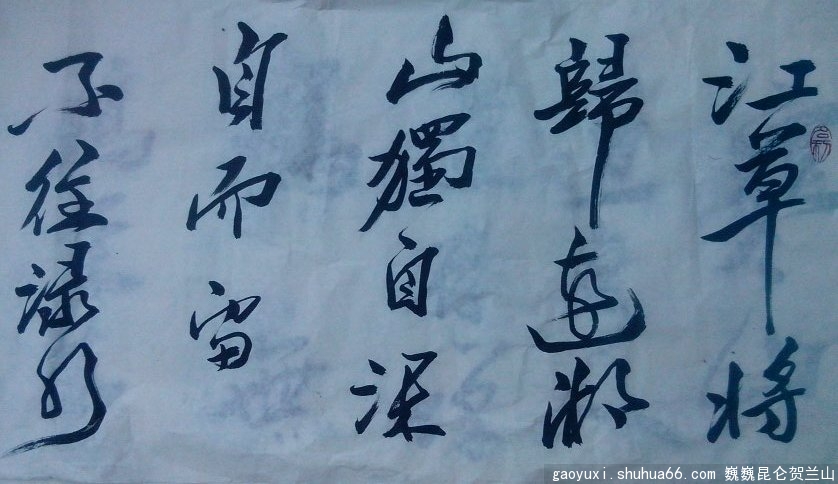 江草将
歸遠湖
山獨自深
自而留
不住禄
gaoyuxi.shuhua66.com 巍巍昆仑贺兰山